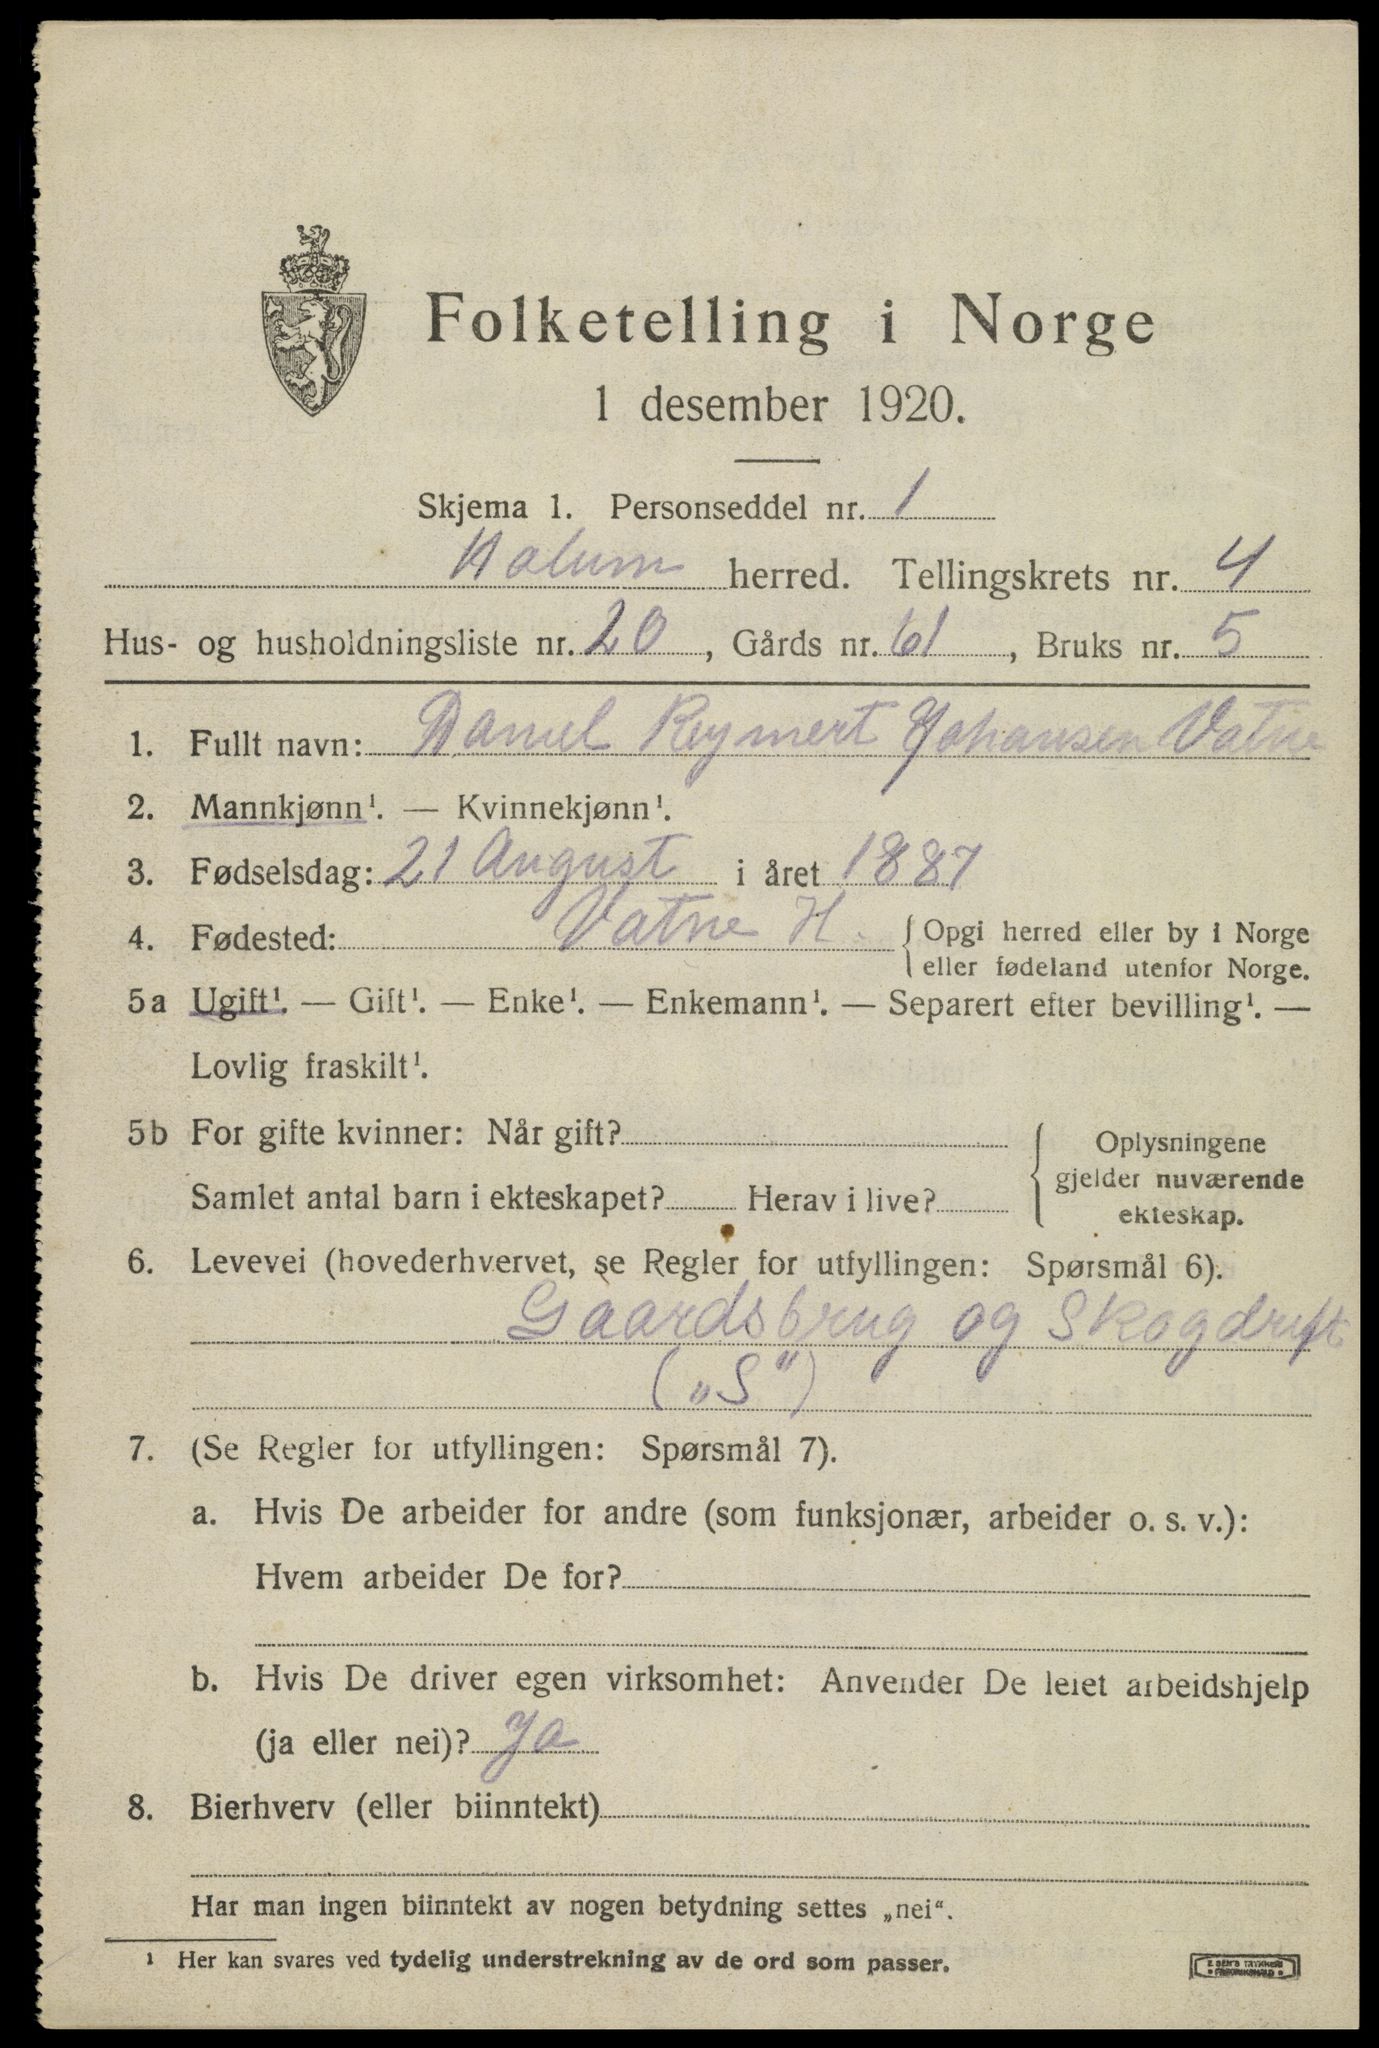 Folketelling i Norge
1 desember 1920.
Skjema 1. Personseddel nr. 1
Holum herred. Tellingskrets nr. 4
Hus- og husholdningsliste nr. 20, Gårds nr. 61, Bruks nr. 5
1. Fullt navn: Daniel Reymert Johansen Vatne
2. Mannkjønn¹. — Kvinnekjønn¹.
3. Fødselsdag: 21 August i året 1887
4. Fødested: Vatne H. { Opgi herred eller by i Norge
eller fødeland utenfor Norge.
5a Ugift¹. — Gift¹. — Enke¹. — Enkemann¹. — Separert efter bevilling¹. —
Lovlig fraskilt¹.
5b For gifte kvinner: Når gift? { Oplysningene
gjelder nuværende
Samlet antal barn i ekteskapet? Herav i live?
ekteskap.
6. Levevei (hovederhvervet, se Regler for utfyllingen: Spørsmål 6).
Gaardsbrug og Skogdrift
(„S")
7. (Se Regler for utfyllingen: Spørsmål 7).
a. Hvis De arbeider for andre (som funksjonær, arbeider o. s. v.):
Hvem arbeider De for?
b. Hvis De driver egen virksomhet: Anvender De leiet arbeidshjelp
(ja eller nei)? Ja
8. Bierhverv (eller biinntekt)
Har man ingen biinntekt av nogen betydning settes „nei“.
¹ Her kan svares ved tydelig understrekning av de ord som passer.